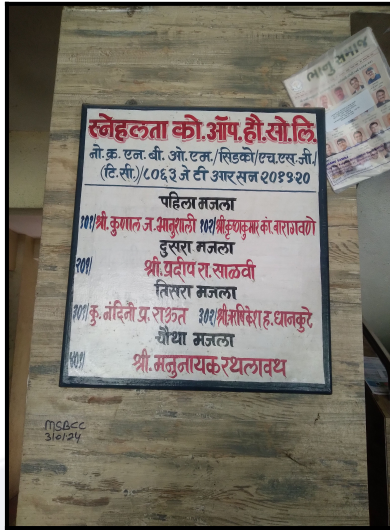 भानु समाज
स्नेहलता को.ऑप.हौ.सो.लि.
नो.क्र.एन.बी.ओ.एम./सिडको/एच.एस.जी./
(टि.सी.)/८०६३ जे टी आर सन २०१९-२०
पहिला मजला
१०१/श्री.कुणाल ज.आनुशाली १०२/श्रीकृष्णकुमार कां.वारागवणे
दुसरा मजला
२०१/ श्री.प्रदीप रा.साळवी
तिसरा मजला
३०१/कु.नंदिनी प्र.राऊत ३०२/श्रीऋषिकेश ह.धानकुटे
चौथा मजला
४०१/ श्री.मनुनायक रथलावथ
MSBCC
3/01/24